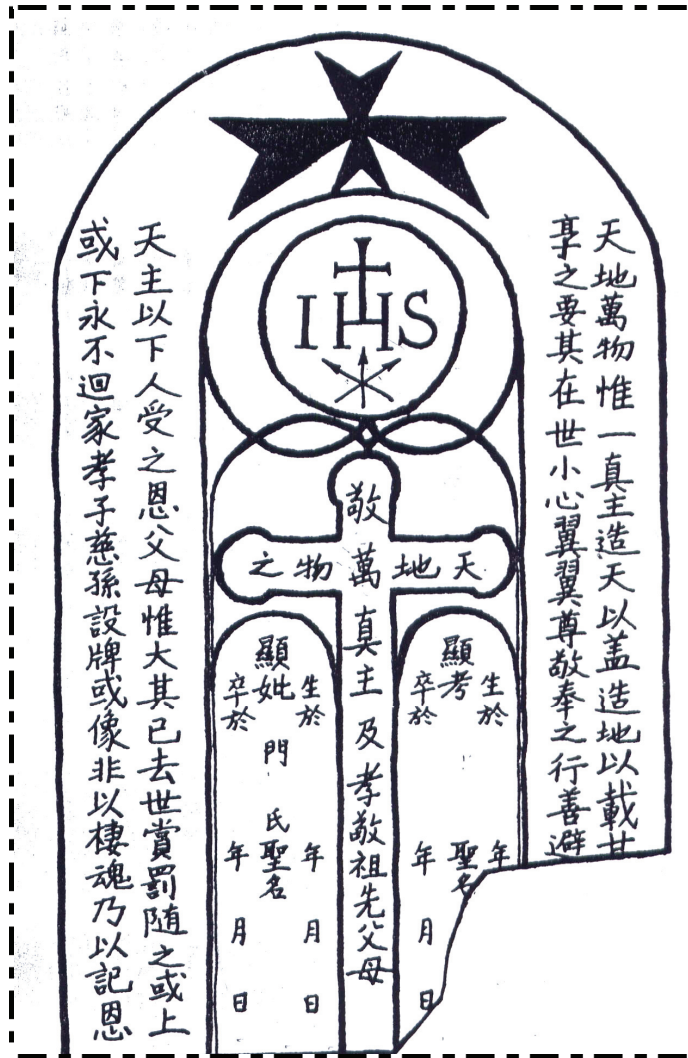 天地萬物惟一真主造天以盖造地以載
享之要其在世小心翼翼尊敬奉之行善避
IHS
天地萬物之
敬萬真主及孝敬祖先父母
生於 年
顯考 聖名
卒於 年 月 日
生於 年 月 日
顯妣 門 氏 聖名
卒於 年 月 日
天主以下人受之恩父母惟大其已去世賞罰随之或上
或下永不迴家孝子慈孫設牌或像非以棲魂乃以記恩